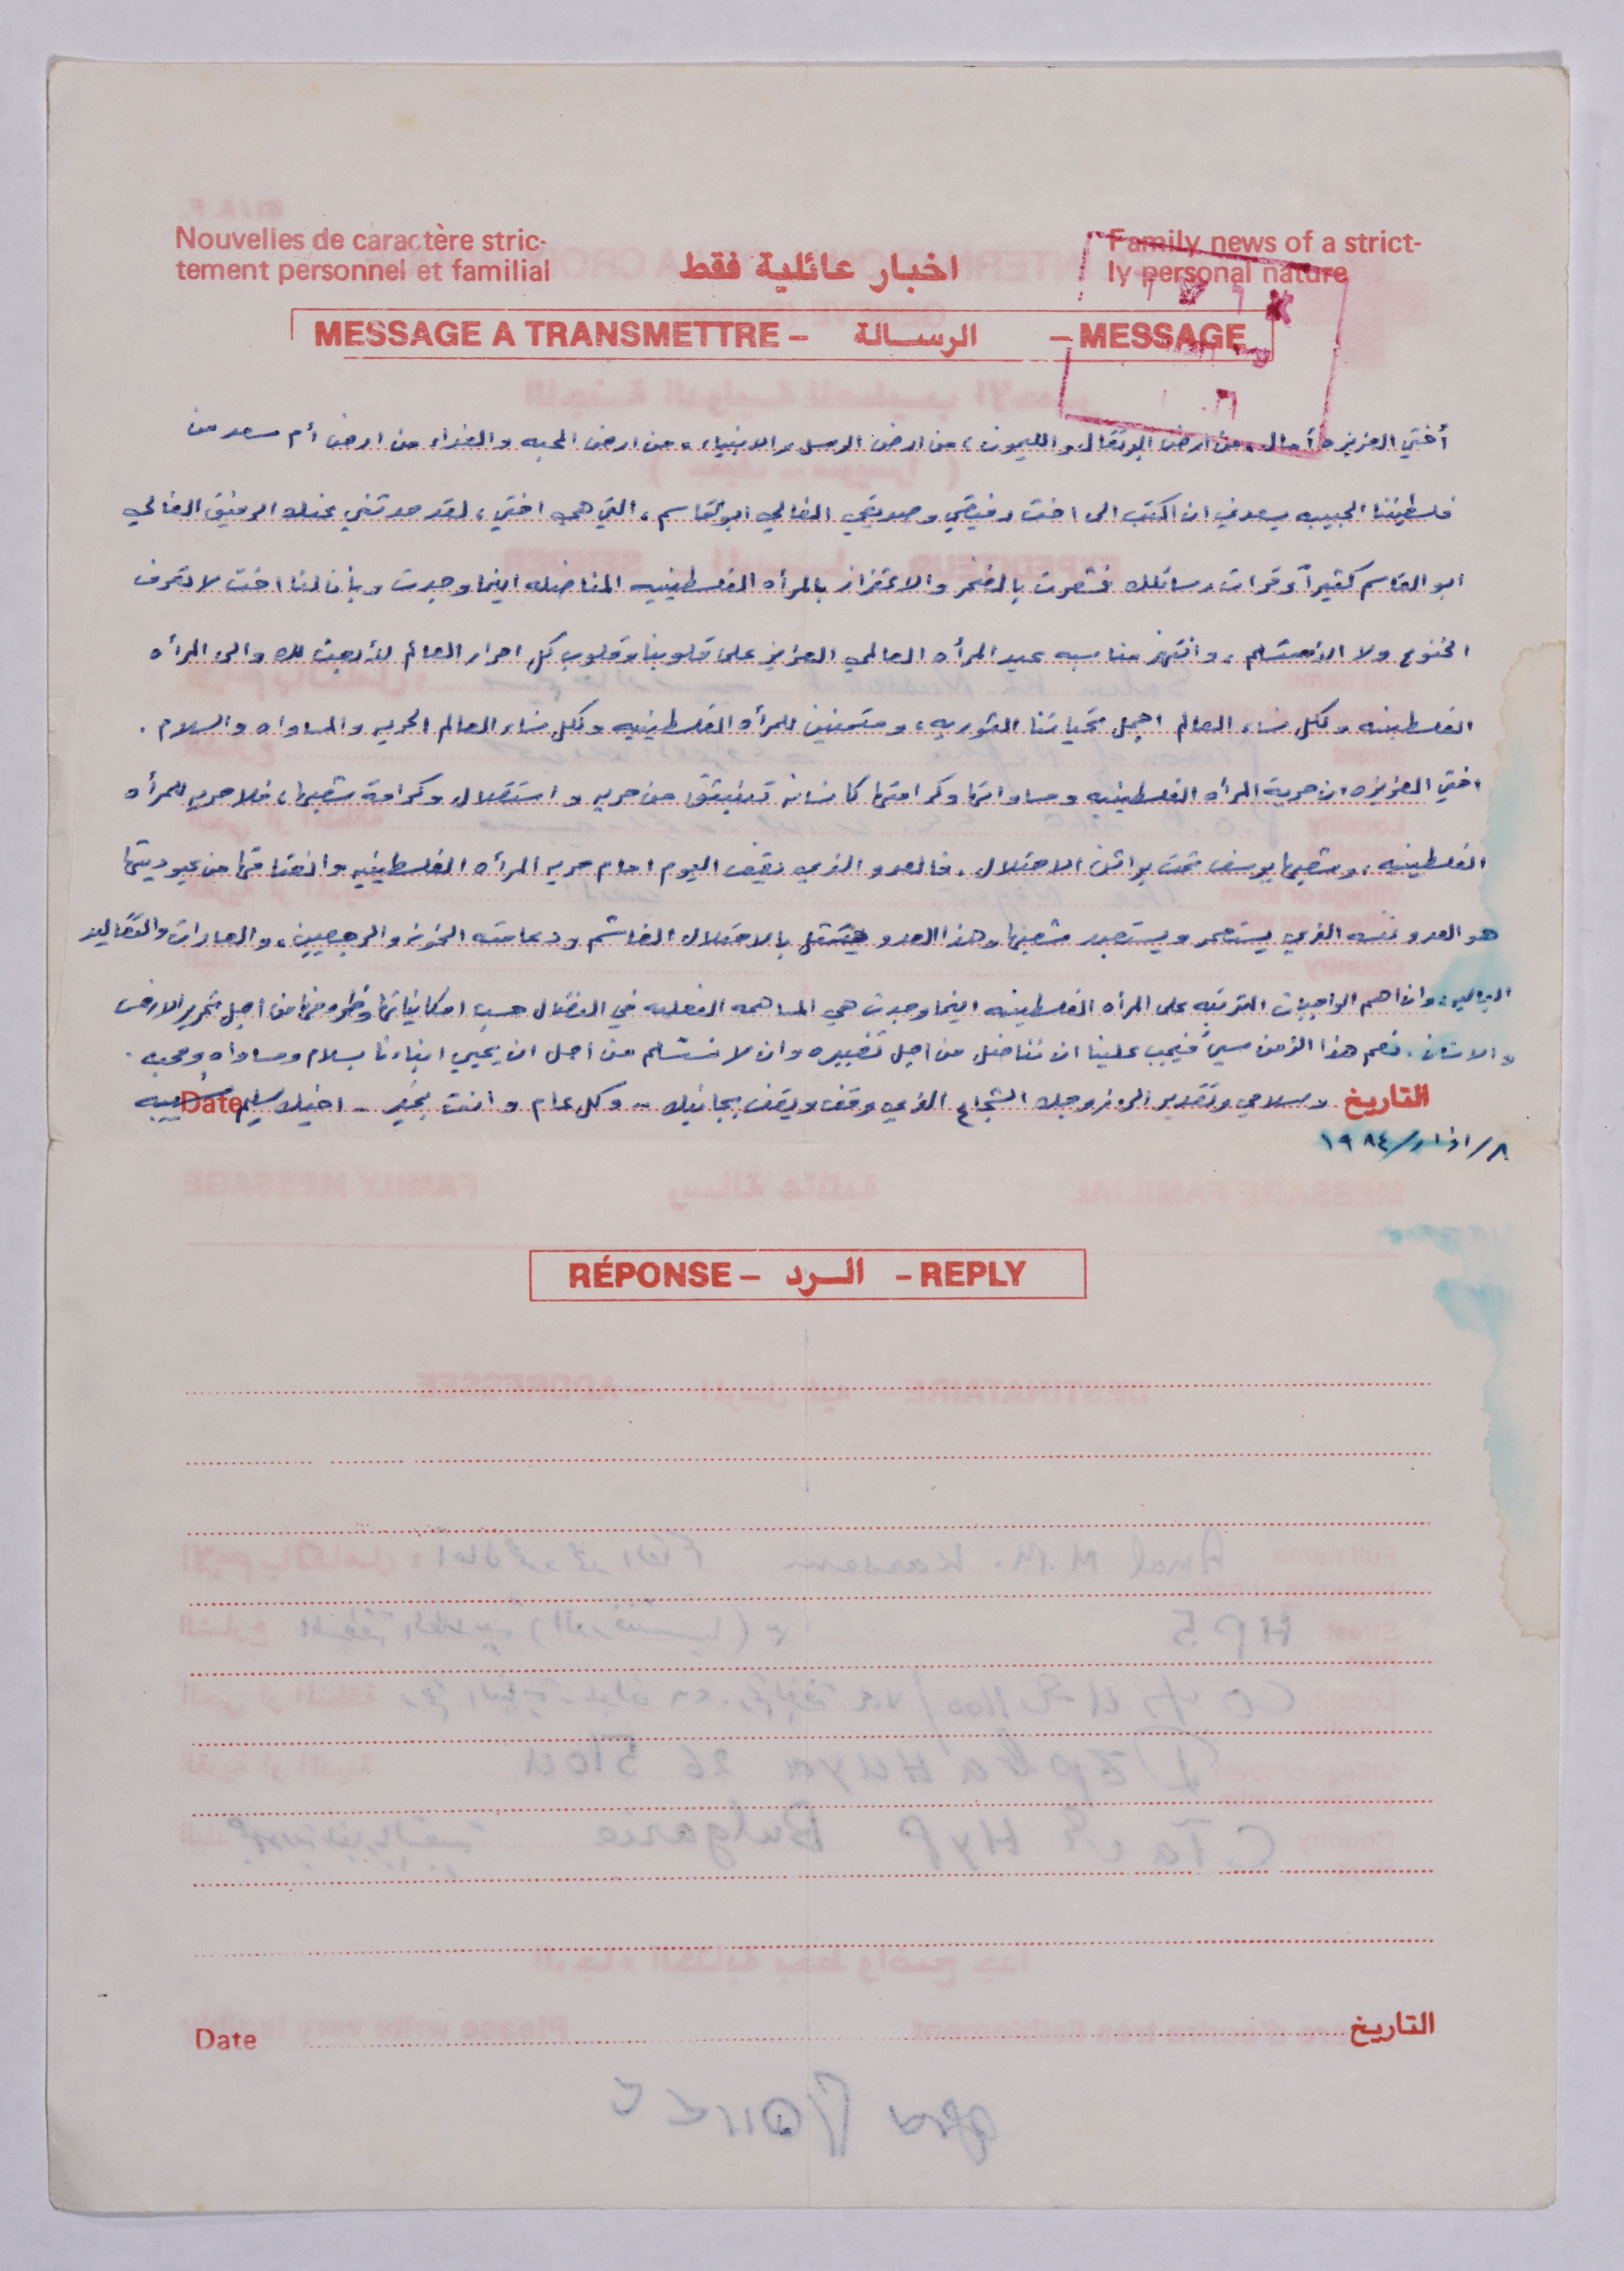 Nouvelles de caractère stric-
tement personnel et familial
اخبار عائلية فقط
Family news of a strict-
ly personal nature
MESSAGE A TRANSMETTRE – الرسالة – MESSAGE
أختي العزيزه أمال، من ارض البرتقال والليمون، من ارض الرسل والانبياء، من ارض المحبه والفداء من ارض أم سعد من
فلسطيننا الحبيبه يسعدني ان اكتب الى اخت رفيقي وصديقي الغالي ابو القاسم، التي هي اختي، لقد حدثني عنك الرفيق الغالي
ابو القاسم كثيراً وقرات رسائلك فشعرت بالفخر والاعتزاز بالمرأه الفلسطينيه المناضله اينما وجدت وبأن لنا اخت لا تعرف
الخنوع ولا الاستسلام، وانتهز مناسبه عيد المرأه العالمي العزيز على قلوبنا وقلوب كل احرار العالم لأبعث لك والى المرأه
الفلسطينه ولكل نساء العالم اجمل تحياتنا الثوريه، ومتمنين للمرأه الفلسطينيه ولكل نساء العالم الحريه والمساواه والسلام.
اختي العزيزه ان حرية المرأه الفلسطينيه ومساواتها وكرامتها كانسانه تنبثق من حريه واستقلال وكرامة شعبها، فلا حريه للمرأه
الفلسطينيه، وشعبها يرسف تحت براثن الاحتلال. فالعدو الذي يقف اليوم امام حريه المرأه الفلسطينيه وانعتاقها من عبوديتها
هو العدو نفسه الذي يستعمر ويستعبد شعبها وهذا العدو يتمثل بالاحتلال الغاشم ودعامته الخونه والرجعيين، والعادات والتقاليد
الباليه، وان اهم الواجبات المترتبه على المرأه الفلسطينه اينما وجدت هي المساهمه الفعليه في النضال حسب امكانياتها وظروفها من اجل تحرير الارض
والانسان. نعم هذا الزمن سيئ فيجب علينا ان نناضل من اجل تغييره وان لا نستسلم من أجل ان يحيى ابناءنا بسلام ومساواه ومحبه.
التاريخ وسلامي وتقدير الى زوجك الشجاع الذي وقف ويقف بجانبك - وكل عام وانت بخير - اخيك سليم Date
٨/اذار/١٩٨٤
RÉPONSE – الرد – REPLY
Date التاريخ